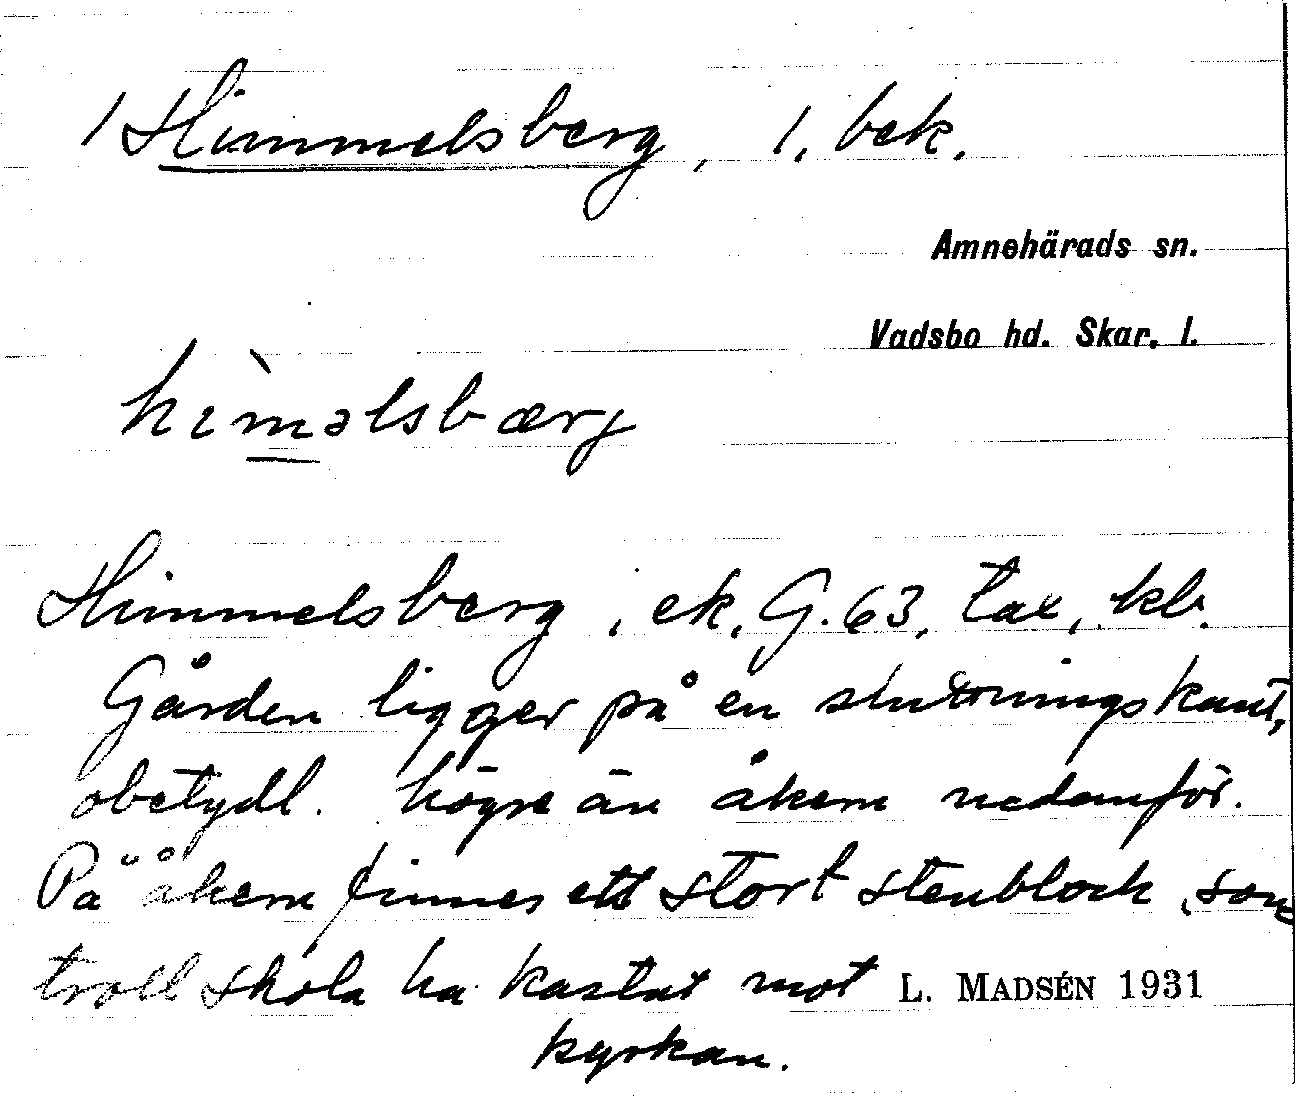 1 Himmelsberg, 1. bek.
Amnehärads sn.
Vadsbo hd. Skar. l.
hìməlsbærj
Himmelsberg, ek. G. 63, tax, kb.
Gården ligger på en sluttningskant,
obetydl. högre än åkern nedanför.
På åkern finnes ett stort stenblock, som
troll skola ha kastat mot
L. MADSÉN 1931
kyrkan.